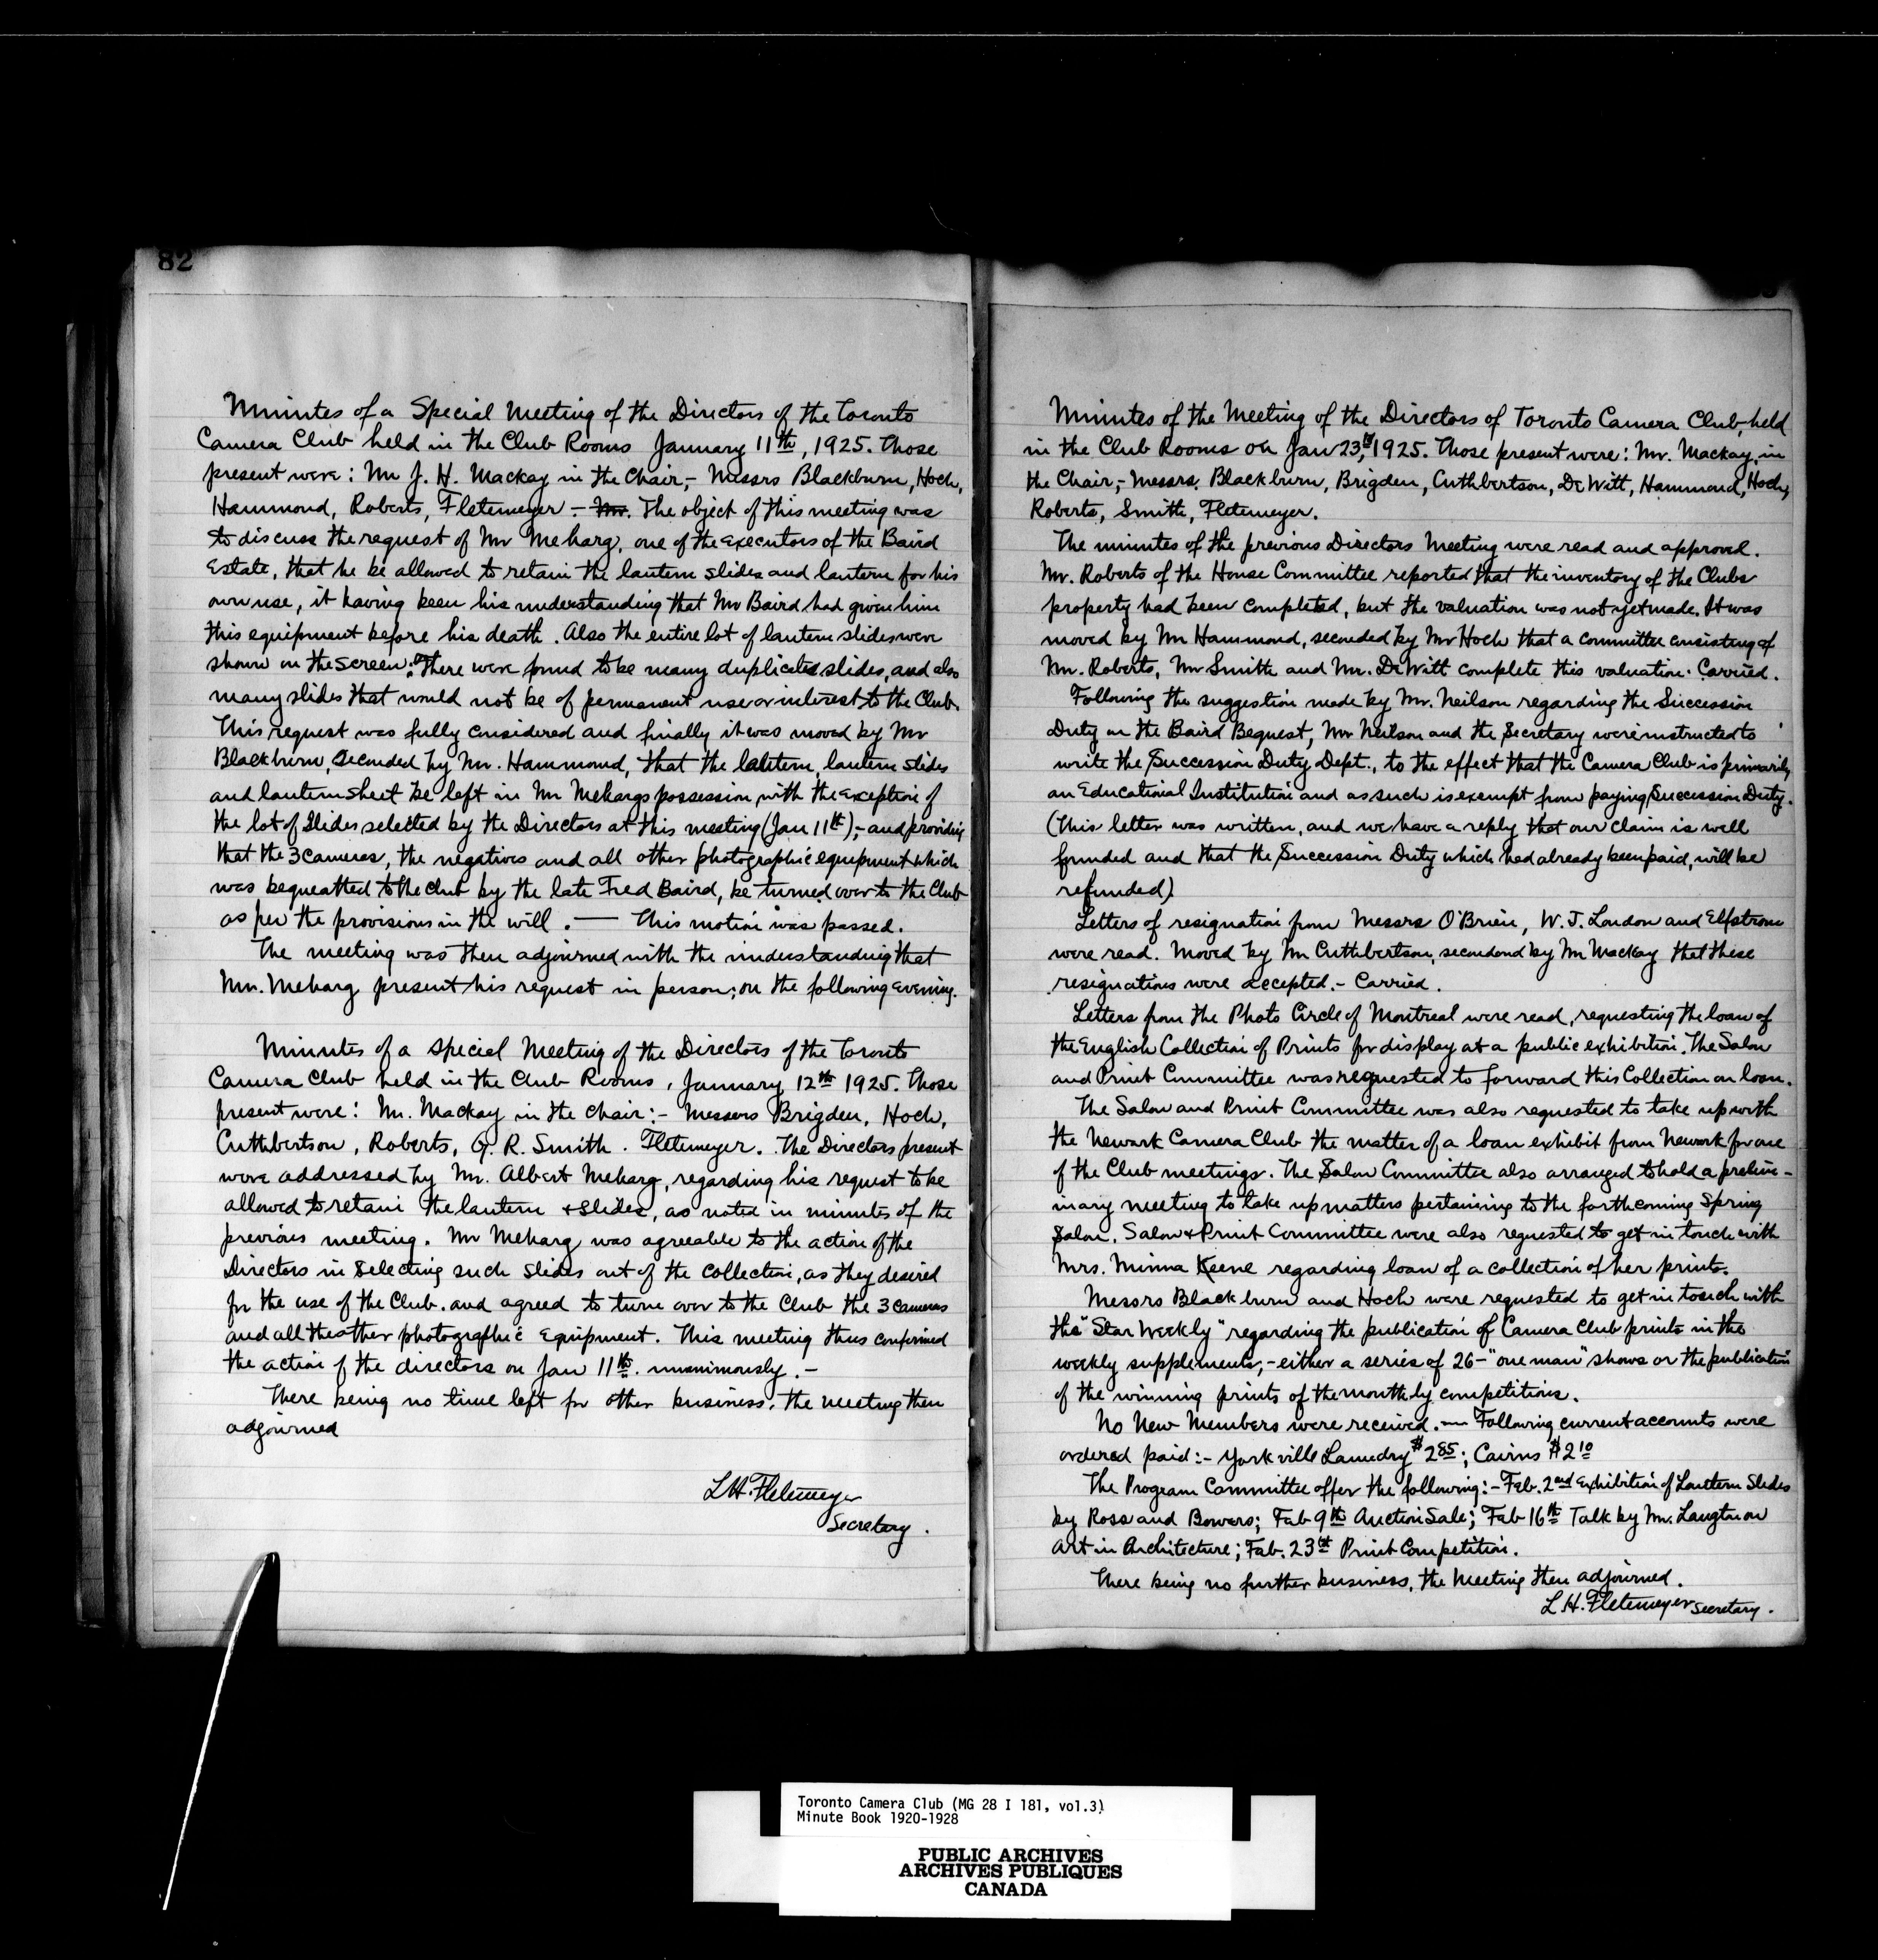 82
Minutes of a Special Meeting of the Directors of the Toronto
Camera Club held in the Club Rooms January 11th, 1925. Those
present were: Mr J. H. Mackay in the Chair,- Messrs Blackburn, Hoch,
Hammond, Roberts, Fletemeyer - Mr. The object of this meeting was
to discuss the request of Mr Meharg, one of the executors of the Baird
Estate, that he be allowed to retain the lantern slides and lantern for his
own use, it having been his understanding that Mr Baird had given him
this equipment before his death. Also the entire lot of lantern slides were
shown on the screen. There were found to be many duplicated slides, and also
many slides that would not be of permanent use or interest to the Club.
This request was fully considered and finally it was moved by Mr
Blackburn, Seconded by Mr. Hammond, that the lantern, lantern slides
and lantern sheet be left in Mr Mehargs possession, with the exception of
the lot of slides selected by the Directors at this meeting (Jan 11th),- and providing
that the 3 cameras, the negatives and all other photographic equipment which
was bequeatted to the club by the late Fred Baird, be turned over to the Club
as per the provisions in the will. — This motion was passed.
The meeting was then adjourned with the understanding that
Mr. Meharg present his request in person; on the following evening.
Minutes of a special Meeting of the Directors of the Toronto
Camera Club held in the Club Rooms, January 12th 1925. Those
present were: Mr. Mackay in the chair:- Messers Brigden, Hoch,
Cuthbertson, Roberts, G. R. Smith. Fletemeyer. The Directors present
were addressed by Mr. Albert Meharg, regarding his request to be
allowed to retain the lantern & slides, as noted in minutes of the
previous meeting. Mr Meharg was agreeable to the action of the
Directors in selecting such slides out of the collection, as they desired
for the use of the Club. and agreed to turn over to the Club the 3 cameras
and all the other photographic equipment. This meeting thus confirmed
the action of the directors on Jan 11th. unanimously. -
There being no time left for other business, the meeting then
adjourned
L.H. Fletemeyer
Secretary.
Minutes of the Meeting of the Directors of Toronto Camera Club, held
in the Club Rooms on Jan 23, 1925. Those present were: Mr. Mackay, in
the Chair,- Messrs. Blackburn, Brigden, Cuthbertson, De Witt, Hammond, Hoch,
Roberts, Smith, Fletemeyer.
The minutes of the previous Directors Meeting were read and approved.
Mr. Roberts of the House Committee reported that the inventory of the Clubs
property had been completed, but the valuation was not yet made. It was
moved by Mr Hammond, seconded by Mr Hoch that a committee consisting of
Mr. Roberts, Mr Smith and Mr. De Witt complete this valuation. Carried.
Following the suggestion made by Mr. Neilson regarding the Succession
Duty on the Baird Bequest, Mr Neilson and the Secretary were instructed to
write the Succession Duty Dept., to the effect that the Camera Club is primarily
an Educational Institution and as such is exempt from paying Succession Duty.
(This letter was written, and we have a reply that our claim is well
founded and that the Succession Duty which had already been paid, will be
refunded).
Letters of resignation from Messrs O'Brien, W. J. London and Elfstrom
were read. Moved by Mr Cuthbertson, secondend by Mr Mackay that these
resignations were accepted. - Carried.
Letters from the Photo Circle of Montreal were read, requesting the loan of
the English Collection of Prints for display at a public exhibition. The Salon
and Print Committee was requested to forward this Collection on loan.
The Salon and Print Committee was also requested to take up with
the Newark Camera Club the matter of a loan exhibit from Newark for one
of the Club meetings. The Salon Committee also arranged to hold a prelim-
inary meeting to take up matters pertaining to the forthcoming Spring
Salon. Salon & Print Committee were also requested to get in touch with
Mrs. Minna Keene regarding loan of a collection of her prints.
Messrs Blackburn and Hoch were requested to get in touch with
the "Star Weekly" regarding the publication of Camera Club prints in the
weekly supplements,- either a series of 26- "one man" shows or the publication
of the winning prints of the monthly competitions.
No New Members were received. — Following current accounts were
ordered paid:- Yorkville Laundry $2.85; Cairns $2.10
The Program Committee offer the following:- Feb. 2nd Exhibition of Lantern Slides
by Ross and Bowers; Feb 9th Auction Sale; Feb 16th Talk by Mr. Langton on
Art in Architecture; Feb. 23rd Print Competition.
There being no further business, the Meeting then adjourned.
L.H. Fletemeyer Secretary.
Toronto Camera Club (MG 28 I 181, vol.3)
Minute Book 1920-1928
PUBLIC ARCHIVES
ARCHIVES PUBLIQUES
CANADA